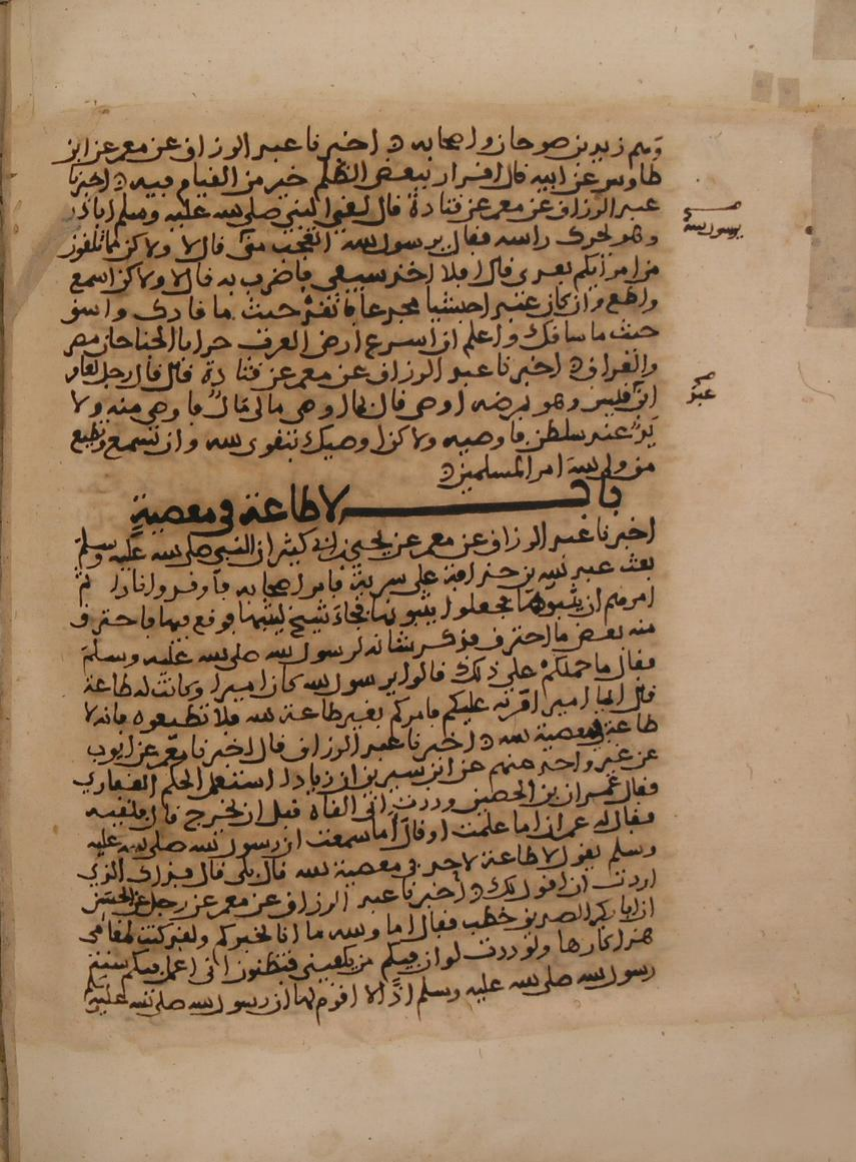 وهم زيد بن صوحان واصحابه اخبرنا عبد الرزاق عن معمر عن ابن
طاوس عن ابيه قال اقرار ببعض الظلم خير من القيام فيه اخبرنا
عبد الرزاق عن معمر عن قتادة قال لقي النبي صلى الله عليه وسلم اباذر
وهو يحرك راسه فقال يرسول الله اتعجب مني قال لا ولاكن مما تلقون
من امرايكم بعدي قال افلا اخذ سيفي فاضرب به قال لا ولاكن اسمع
واطع وان كان عبدا حبشيا مجدعا فانقد حيث ما قادك وانسق
حيث ما ساقك واعلم ان اسرع ارض العرب خرابا الجناحان مصر
والعراق اخبرنا عبد الرزاق عن معمر عن قتادة قال قال رجل لعامر
ابن قيس وهو بمرضه اوصي قال بما اوصي مالي مال فاوصي منه ولا
عند سلطن فاوصيه ولاكن اوصيك بتقوى الله وان تسمع وتطيع
من ولى الله امر المسلمين
باب لا طاعة في معصية
اخبرنا عبد الرزاق عن معمر عن يحيى بن ابي كثير ان النبي صلى الله عليه وسلم
بعث عبد الله بن حذافة على سرية فامر اصحابه فاوقدوا نارا ثم
امرهم ان يثبوها فجعلوا يثبونها فجاء شيخ ليثبها فوقع فيها فاحترق
منه بعض ما احترق فذكر شانه لرسول الله صلى الله عليه وسلم
فقال ما حملكم على ذلك قالوا يرسول الله كان اميرا وكانت له طاعة
قال ايما امير امرته عليكم فامركم بغير طاعة الله فلا تطيعوه فانه لا
طاعة في معصية الله اخبرنا عبد الرزاق قال اخبرنا معمر عن ايوب
عن غير واحد منهم عن ابن سيرين ان زيادا استعمل الحكم الغفاري
فقال عمران بن الحصين وددت اني القاه قبل ان يخرج قال فلقيه
فقال له عمران اما علمت او قال اما سمعت ان رسول الله صلى الله عليه
وسلم يقول لا طاعة لاحد في معصية الله قال بلى قال فذاك الذي
اردت ان اقول لك اخبرنا عبد الرزاق عن معمر عن رجل عن الحسن
ان ابا بكر الصديق خطب فقال اما والله ما انا بخيركم ولقد كنت لمقامي
هذا كارها ولوددت لو ان فيكم من يكفيني فتظنون اني اعمل فيكم سنة
رسول الله صلى الله عليه وسلم اذا لا اقوم لها ان رسول الله صلى الله عليه
يرسول الله
عبد